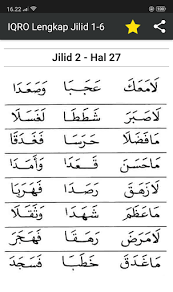 16.22
IQRO Lengkap Jilid 1-6
Jilid 2 - Hal 27
لَامَعَكَ عَجَبًا وَصَعَدًا
لَاصَبَرَ شَطَطًا لَغَسَلَا
مَافَضَلَا حَرَسًا فَغَدَقًا
مَاحَسَنَ قَعَدَا وَأَمَدًا
لَازَهَقَ رَصَدًا فَهَرَبَا
مَاعَظَمَ شَهَدَا وَنَقَلَا
لَامَرَضَ رَهَقًا فَهَجَرَ
مَاغَدَقَ خَطَبًا فَسَجَدَ